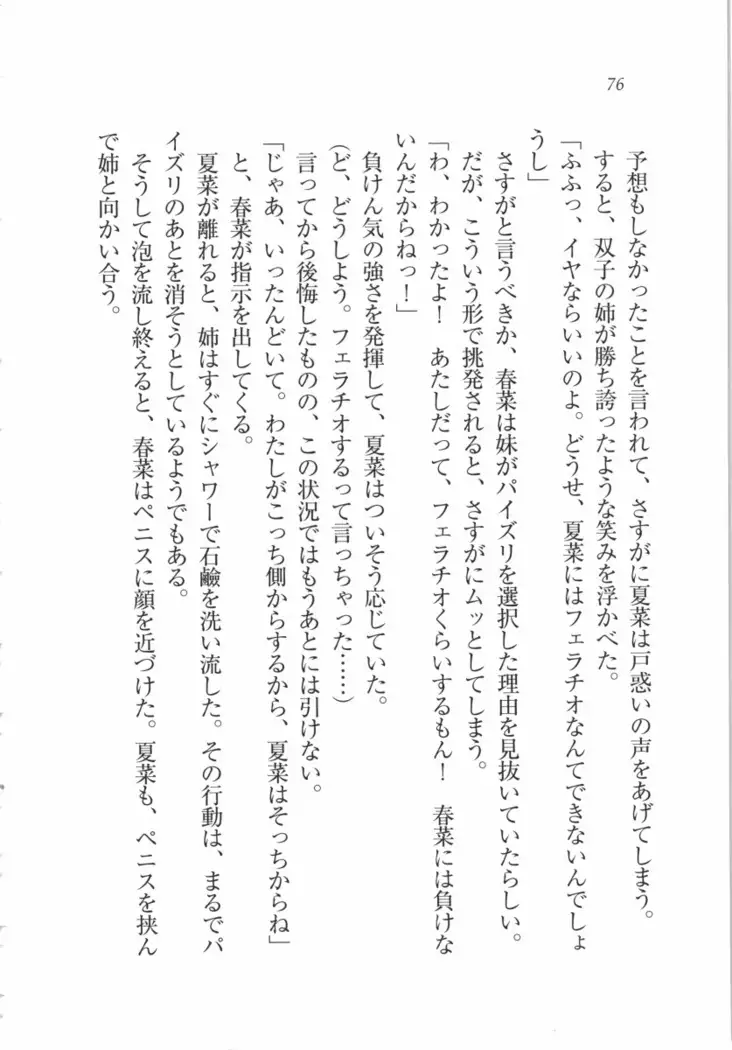 76
予想もしなかったことを言われて、さすがに夏菜は戸惑いの声をあげてしまう。
すると、双子の姉が勝ち誇ったような笑みを浮かべた。
「ふふっ、イヤならいいのよ。どうせ、夏菜にはフェラチオなんてできないんでしょ
うし」
さすがと言うべきか、春菜は妹がパイズリを選択した理由を見抜いていたらしい。
だが、こういう形で挑発されると、さすがにムッとしてしまう。
「わ、わかったよ！　あたしだって、フェラチオくらいするもん！　春菜には負けな
いんだからねっ！」
負けん気の強さを発揮して、夏菜はついそう応じていた。
(ど、どうしよう。フェラチオするって言っちゃった……)
言ってから後悔したものの、この状況ではもうあとには引けない。
「じゃあ、いったんどいて。わたしがこっち側からするから、夏菜はそっちからね」
と、春菜が指示を出してくる。
夏菜が離れると、姉はすぐにシャワーで石鹼を洗い流した。その行動は、まるでパ
イズリのあとを消そうとしているようでもある。
そうして泡を流し終えると、春菜はペニスに顔を近づけた。夏菜も、ペニスを挟ん
で姉と向かい合う。